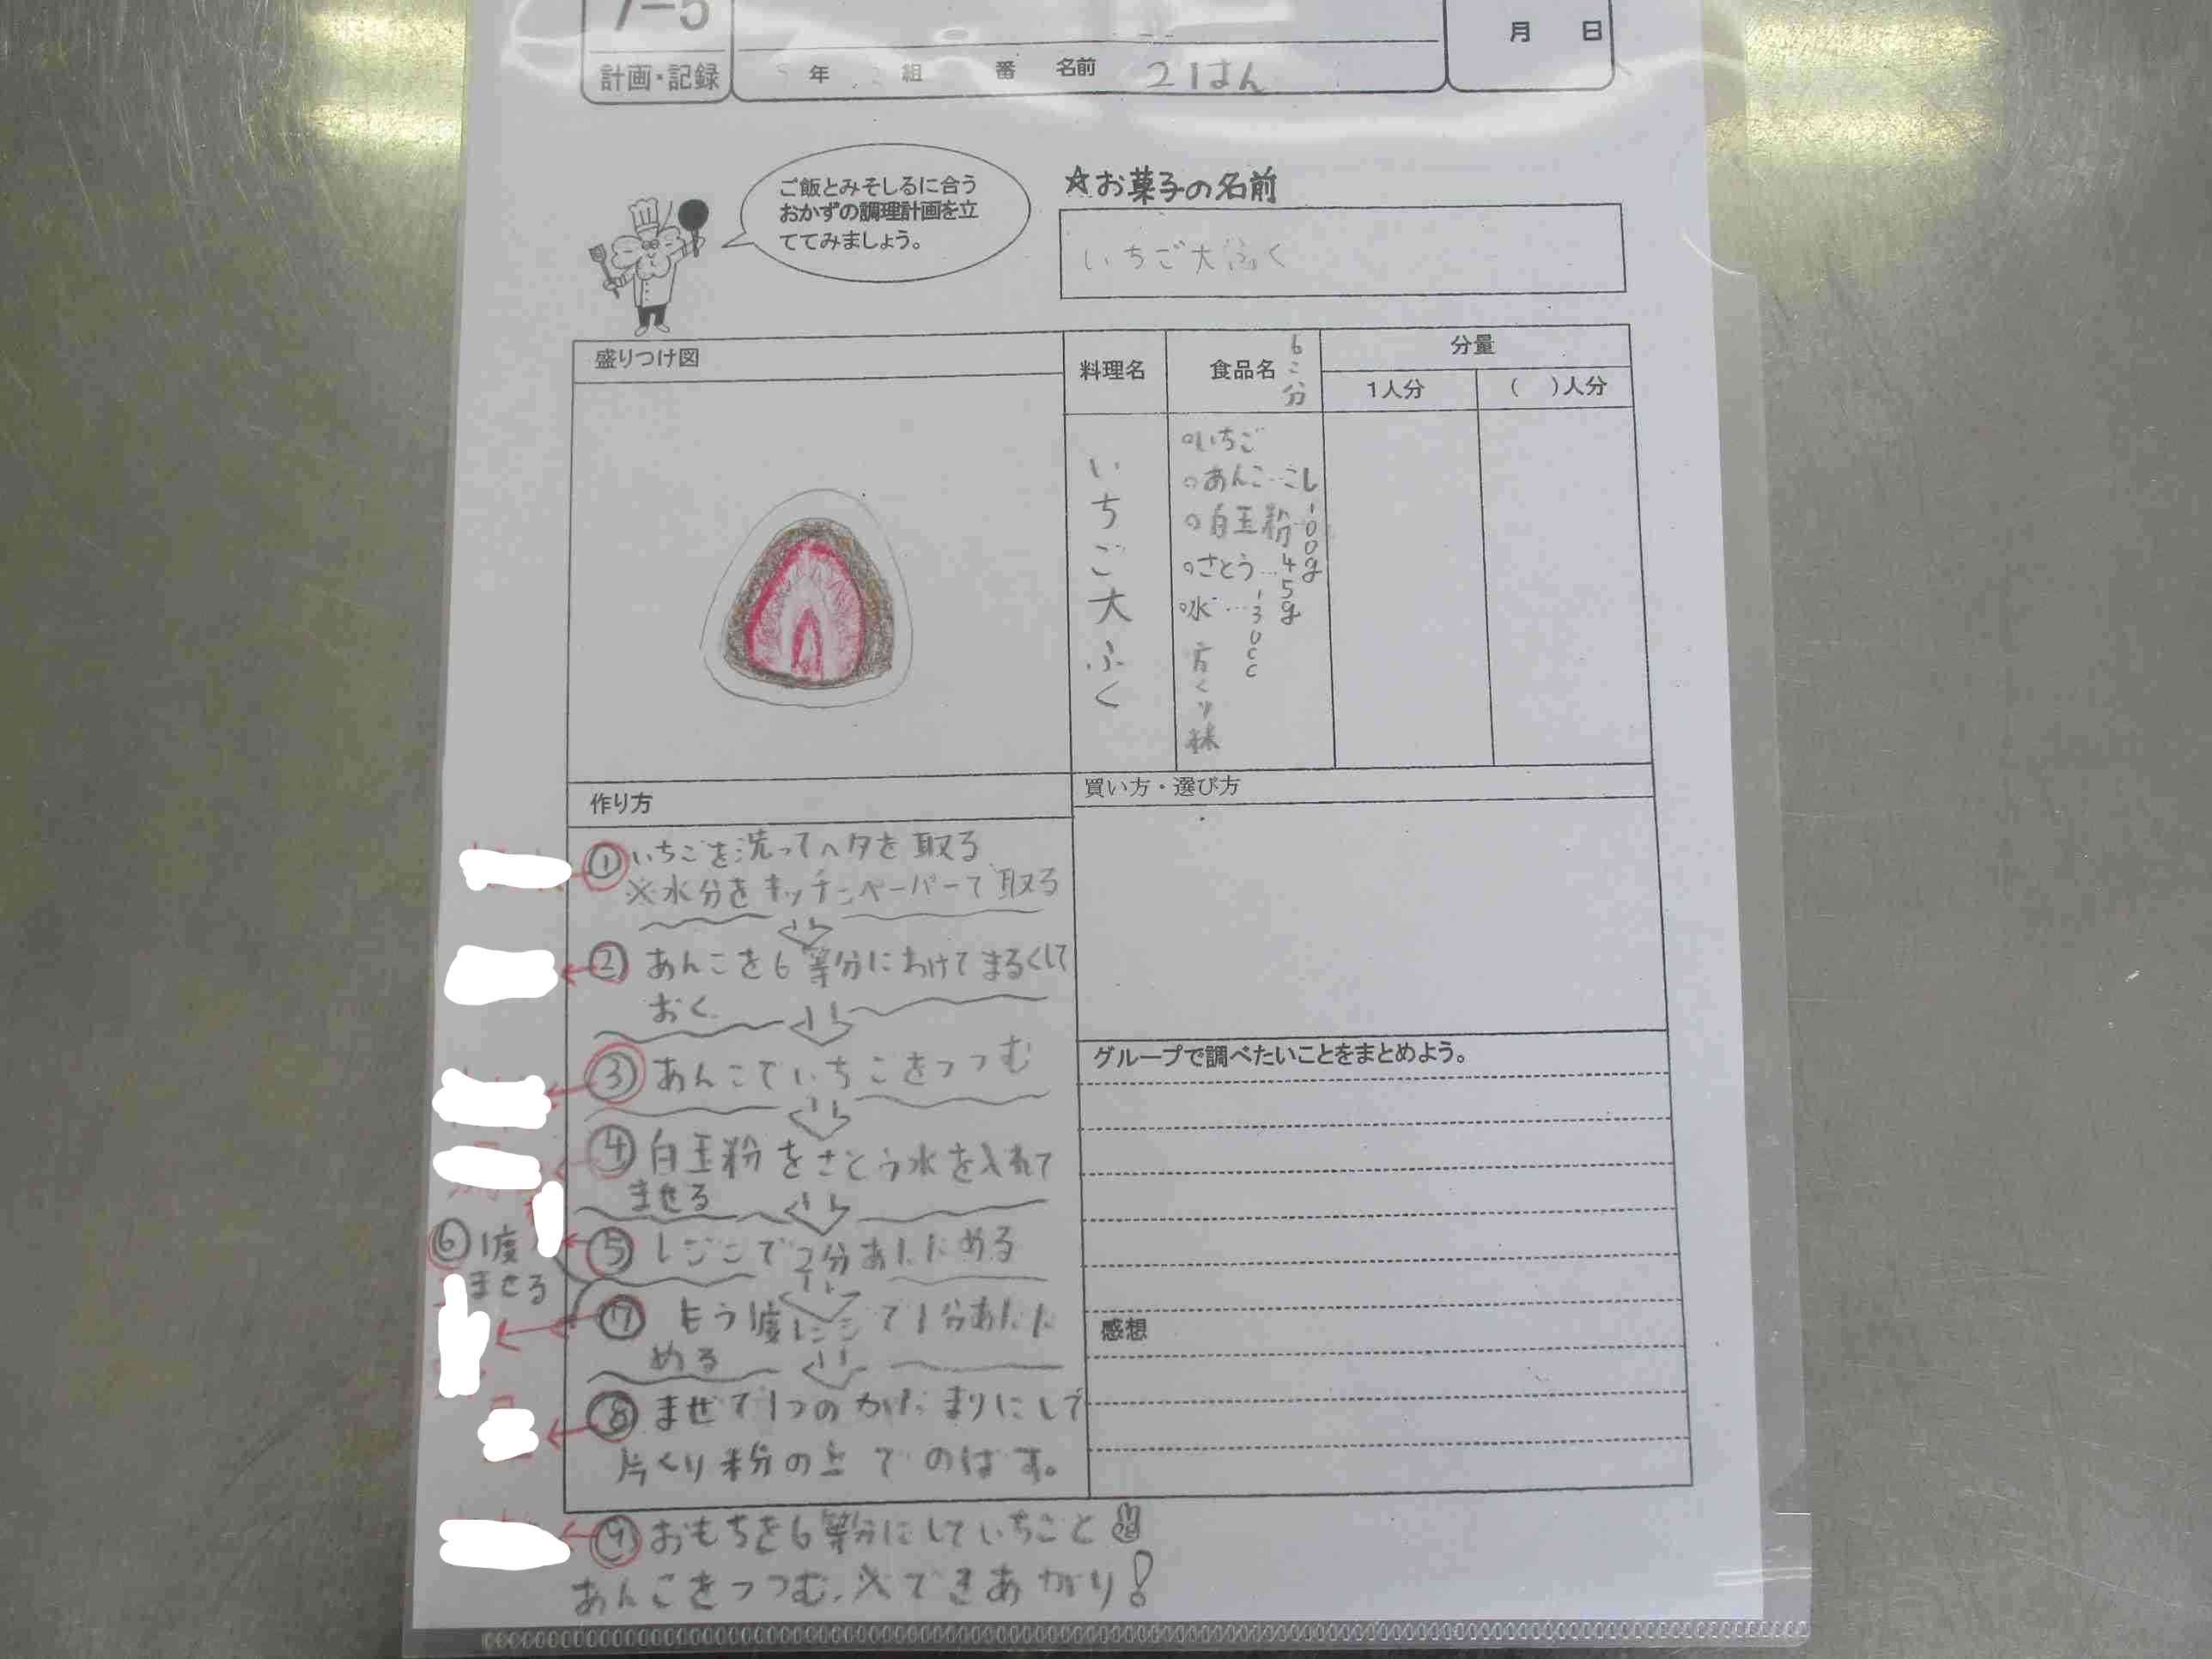 7-5
計画・記録
年 組 番 名前 21はん
月 日
ご飯とみそしるに合う
おかずの調理計画を立
ててみましょう。
☆お菓子の名前
いちご大ふく
盛りつけ図
料理名
いちご大ふく
食品名
6こ分
○いちご
○あんこ…こし
○白玉粉…100g
○さとう…45g
○水…130cc
片くり粉
分量
1人分
( )人分
作り方
①いちごを洗ってヘタを取る
※水分をキッチンペーパーで取る
②あんこを6等分にわけてまるくして
おく
③あんこでいちごをつつむ
④白玉粉をさとう水を入れて
まぜる
⑤レンジで2分あたためる
⑥1度
まぜる
⑦もう1度レンジで1分あたた
める
⑧まぜて1つのかたまりにして
片くり粉の上でのばす。
⑨おもちを6等分にしていちごと
あんこをつつむ、※できあがり!
買い方・選び方
グループで調べたいことをまとめよう。
感想